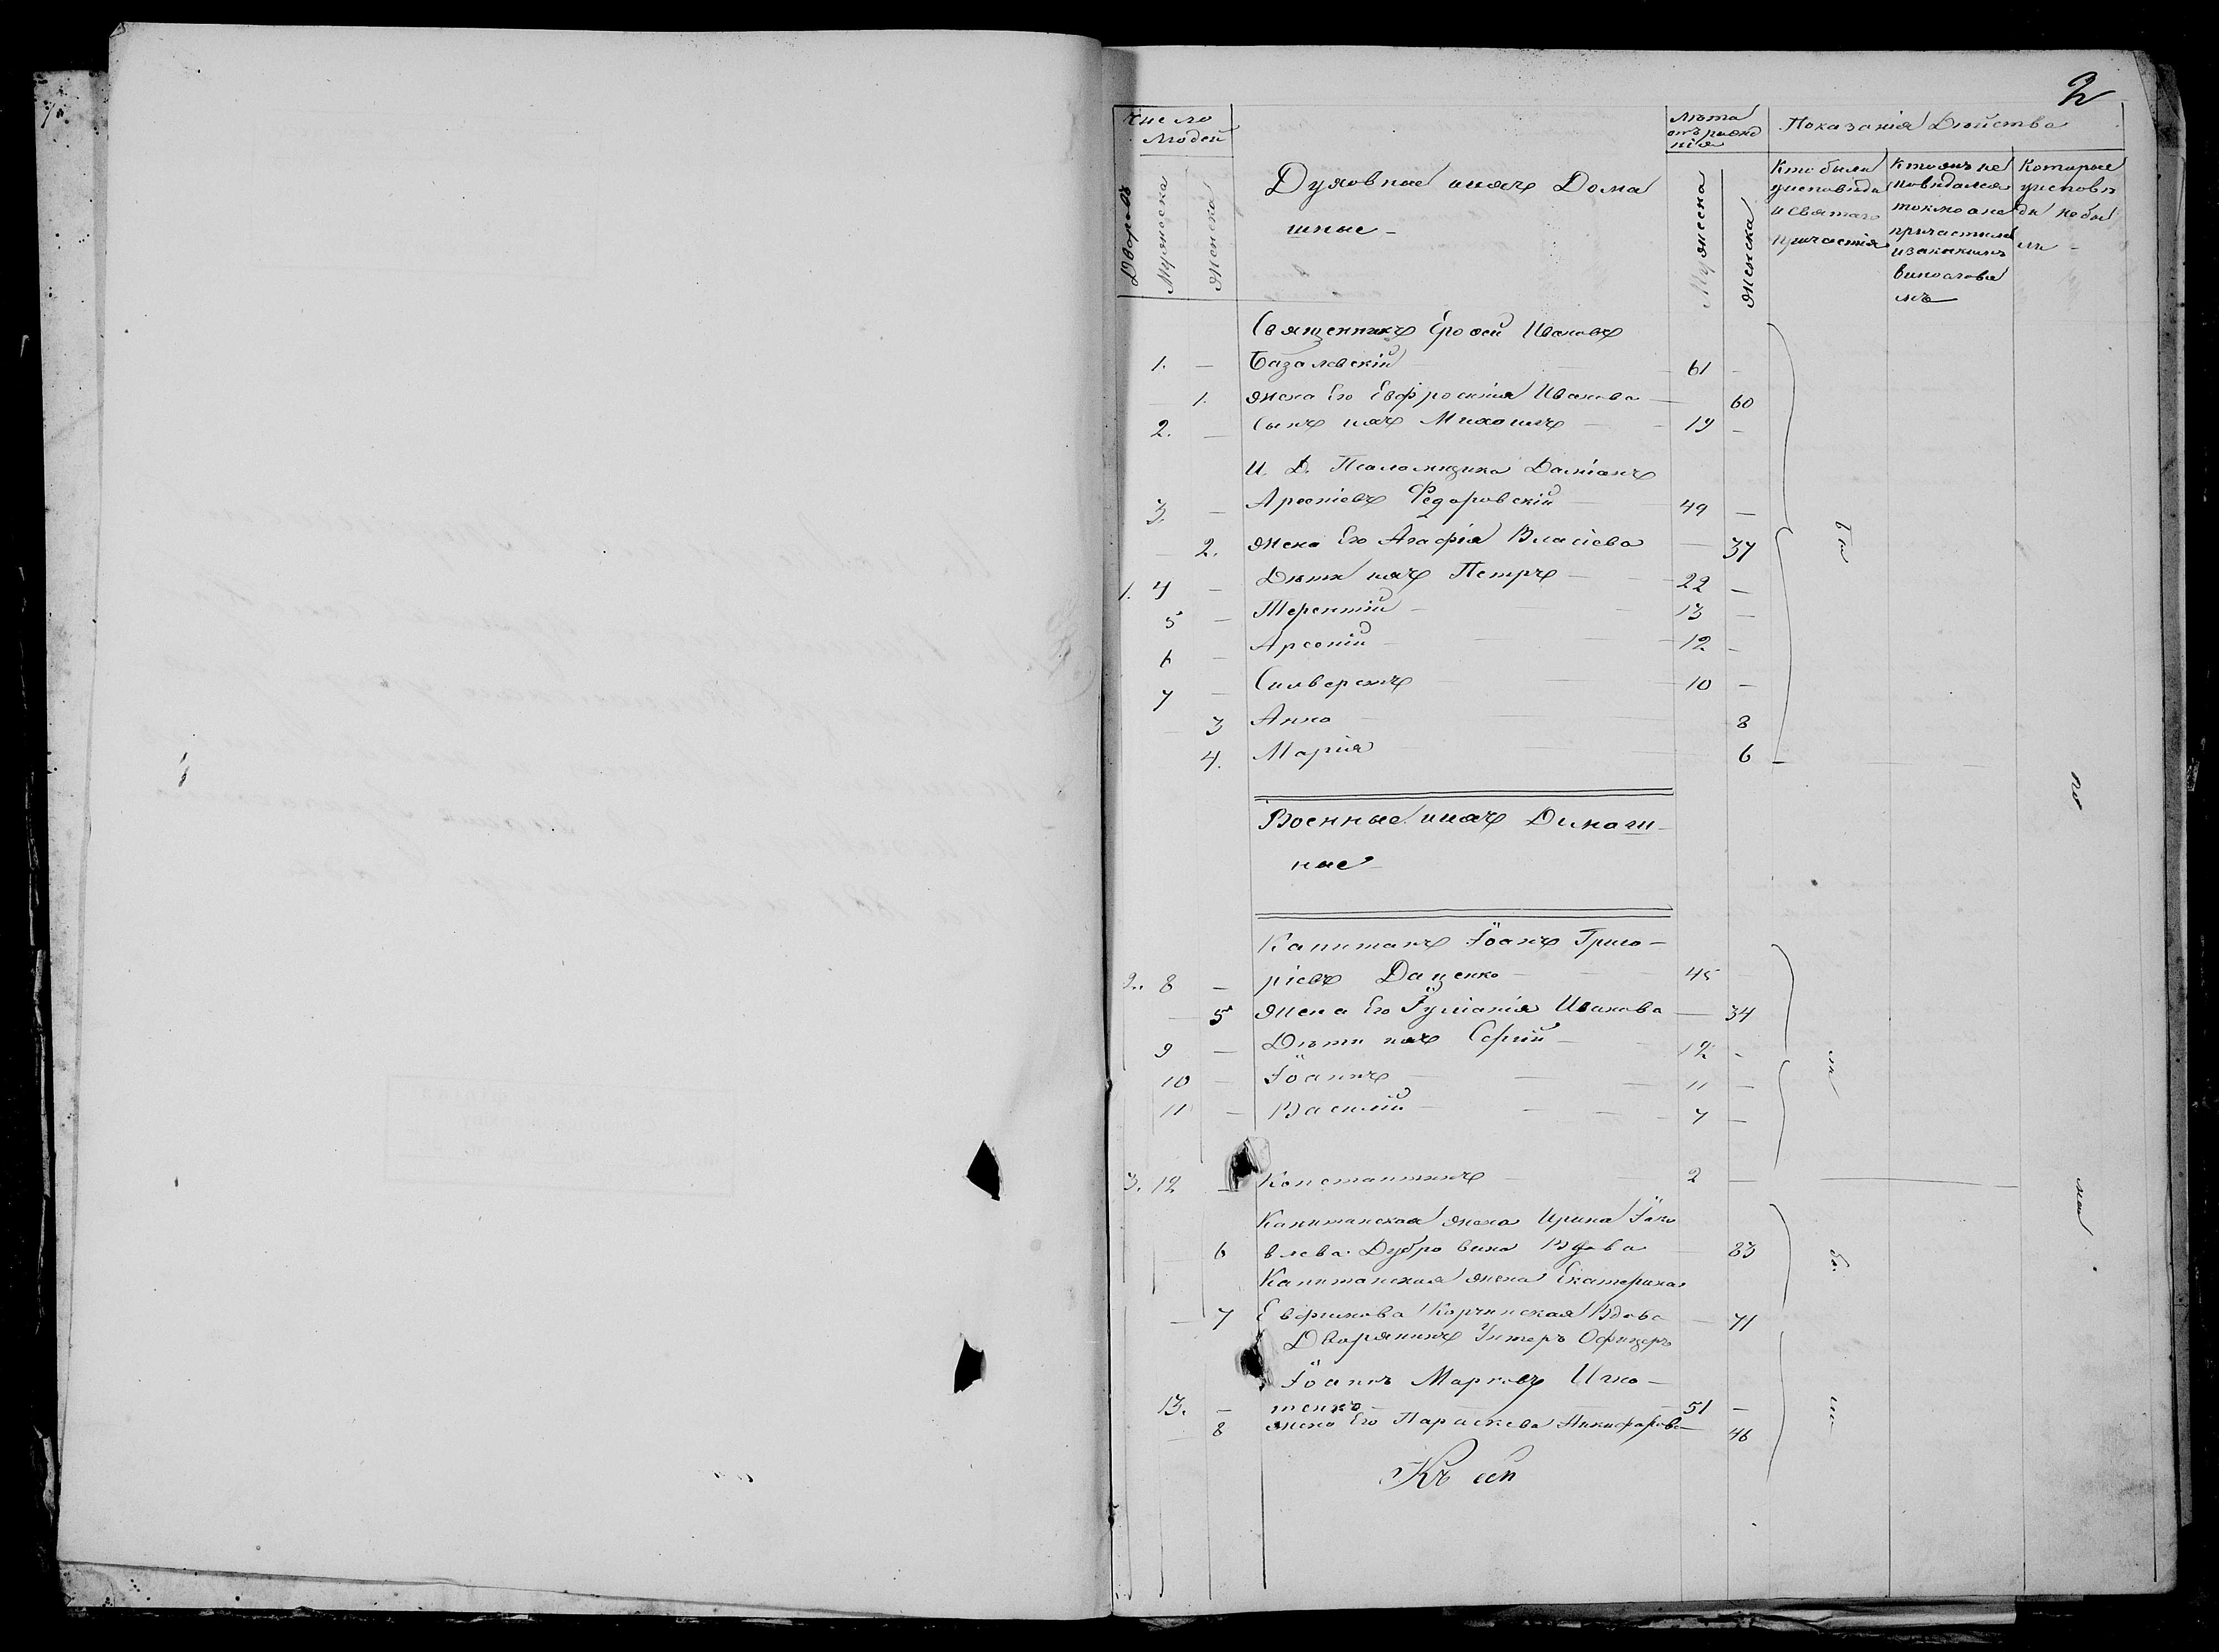 2
Число
Людей
Дворовъ
Мужеска
Женска
Духовные ихъ Дома
шные
Лѣта
отъ рожд
нія
Мужеска
Женска
Показанія Дѣйства
Кто были
у исповѣди
и святаго
причастія
Кто
повѣдался
токмо а не
причастил
и за какимъ
винослові
мъ
Которые
у исповѣ
ди не бы
ли
Священникъ Ерофей Ивановъ
1. — Базалевскій 61 —
— 1. жена Его Евфросинія Иванова — 60
2. — Сынъ ихъ Михаилъ 19 —
И. Д. Псаломщика Даміанъ
3. — Арсеніевъ Федоровскій 49 —
— 2. жена Его Агафія Власіева — 37
1. 4 — Дѣти ихъ Петръ 22 —
5 — Терентій 13 —
6 — Арсеній 12 —
7 — Сильверстъ 10 —
— 3 Анна 8
4. Марія 6
Бы
Военные ихъ Домаш
ные
Капитанъ Іоанъ Григо-
2. 8 — ріевъ Даценко 45
— 5 жена Его Іуліанія Иванова — 34
9 — Дѣти ихъ Сергій 12 —
10 — Іоаннъ 11 —
11 — Василій 7 —
ли
3. 12 — Константинъ 2 —
Капитанская жена Ирина Яко
6 влева Дубровина Вдова 83
Капитанская жена Екатерина
— 7 Корчинская Вдова — 71
Дворянинъ Унтеръ Офицеръ
Іоаннъ Марковъ Игна-
13. — тенко 51 —
— 8 жена Его Параскева Никифорова — 46